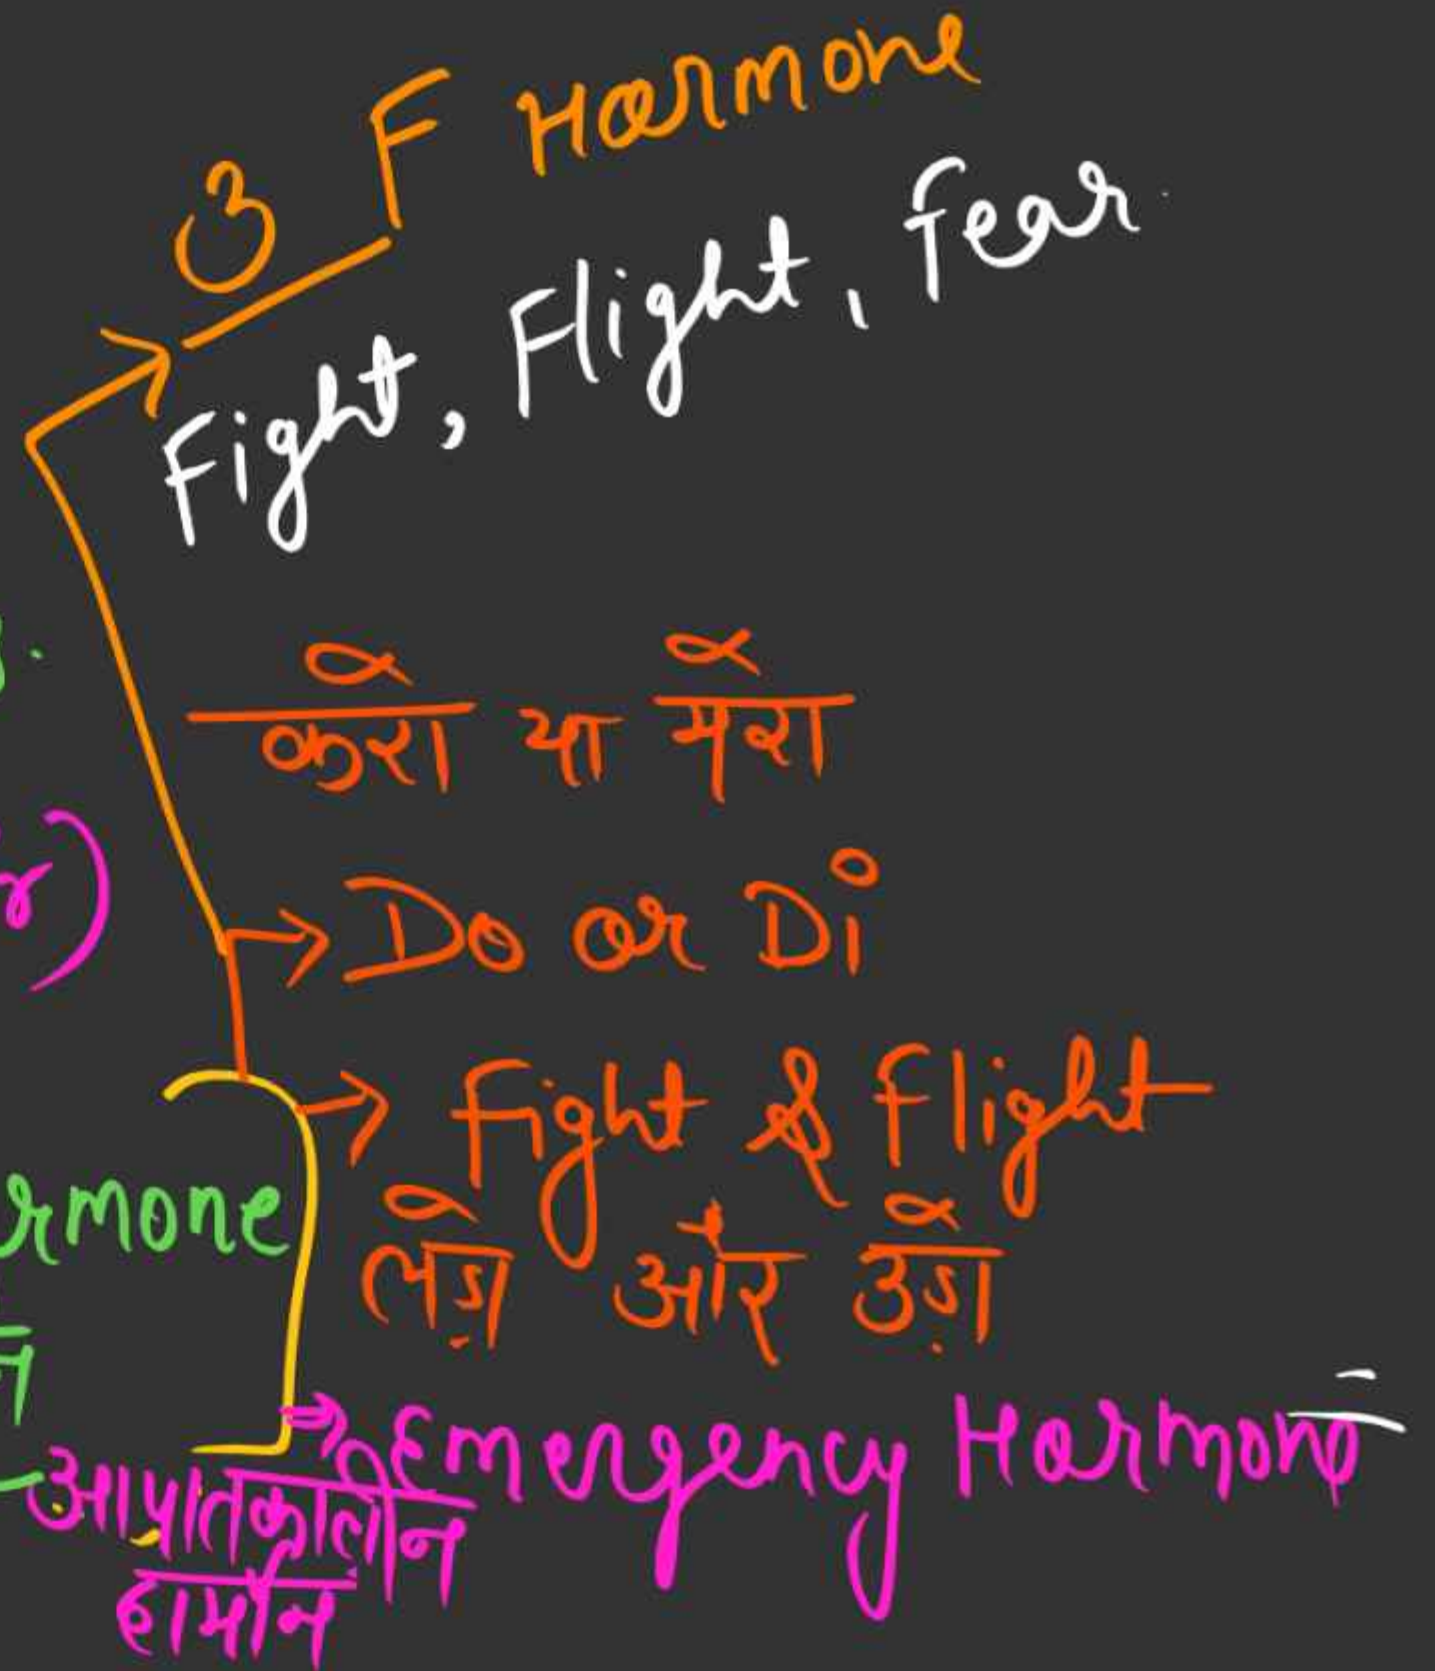 3 F Hormone
Fight, Flight, fear.
करो या मरो
Do or Di
Fight & Flight
rmone
लड़ो और उड़ो
Emergency Hormone
आपातकालीन
हार्मोन